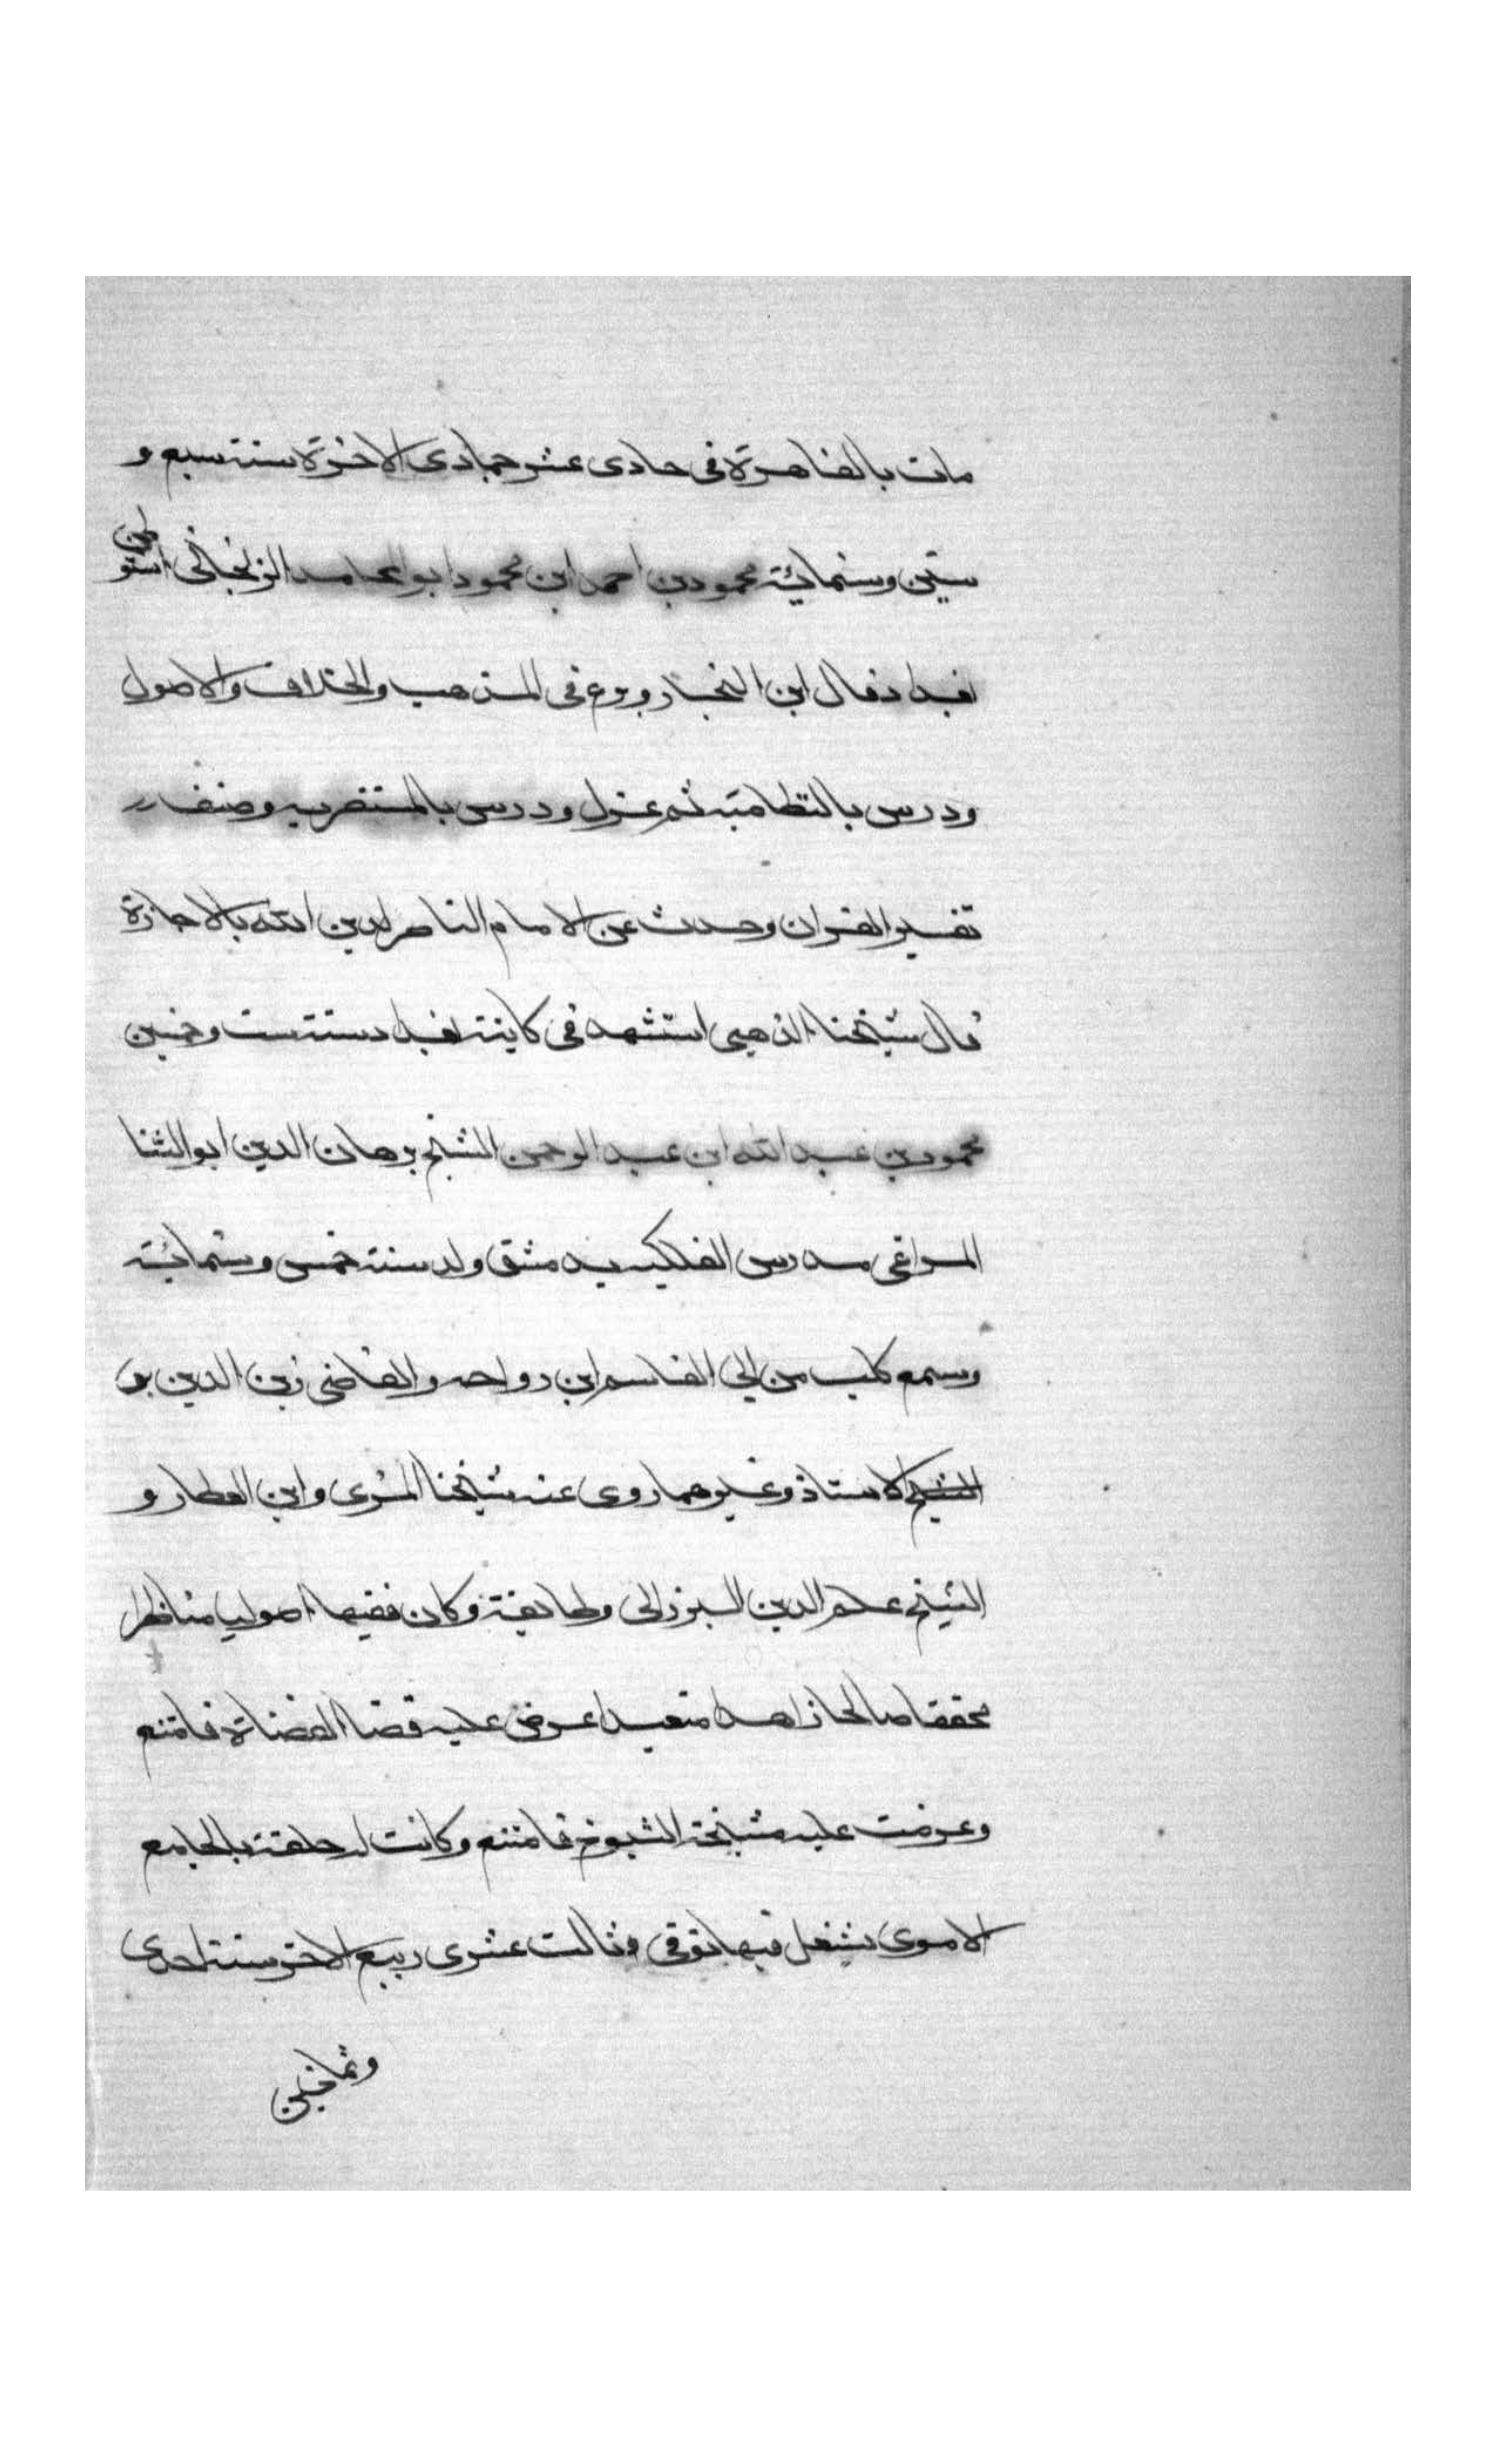 مات بالقاهرة فى حادى عشر جمادى الاخرة سنة سبع و
ستين وستمائة محمود بن احمد ابن محمود ابو المحامد الزنجانى استوطن
بغداد قال ابن النجار وبرع فى المذهب والخلاف والاصول
ودرس بالنظامية ثم عزل ودرس بالمستنصريه وصنف
تفسير القران وحدث عن الامام الناصر لدين الله بالاجازة
قال شيخنا الذهبى استشهد فى كاينة بغداد سنة ست وخمسين
محمود بن عبد الله ابن عبد الرحمن الشيخ برهان الدين ابو الثنا
المراغى مدرس الفلكيه بدمشق ولد سنة خمس وستمائة
وسمع بحلب من ابى القاسم ابن رواحه والقاضى زين الدين بن
الاستاذ وغيرهما روى عنه شيخنا المزى وابن العطار و
الشيخ علم الدين البرزالى وطايفة وكان فقيها اصوليا مناظرا
محققا صالحا زاهدا متعبدا عرض عليه قضا القضاة فامتنع
وعرضت عليه مشيخة الشيوخ فامتنع وكانت له حلقة بالجامع
الاموى يشغل فيها توفى فى ثالث عشرى ربيع الاخر سنة احدى
وثمانين